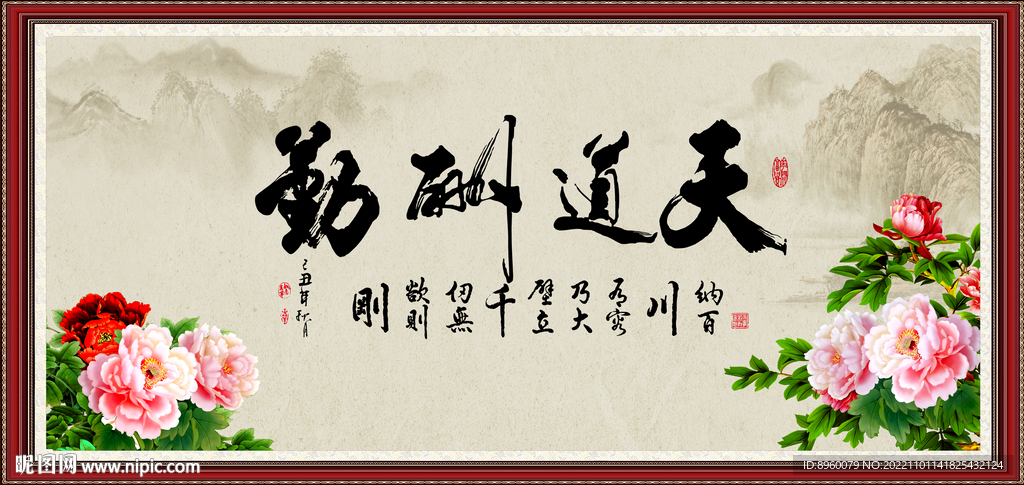 天道酬勤
納百
川
有容
乃大
壁立
千
仞無
欲則
剛
己丑年秋月
昵图网 www.nipic.com
ID:8960079 NO:20221101141825432124